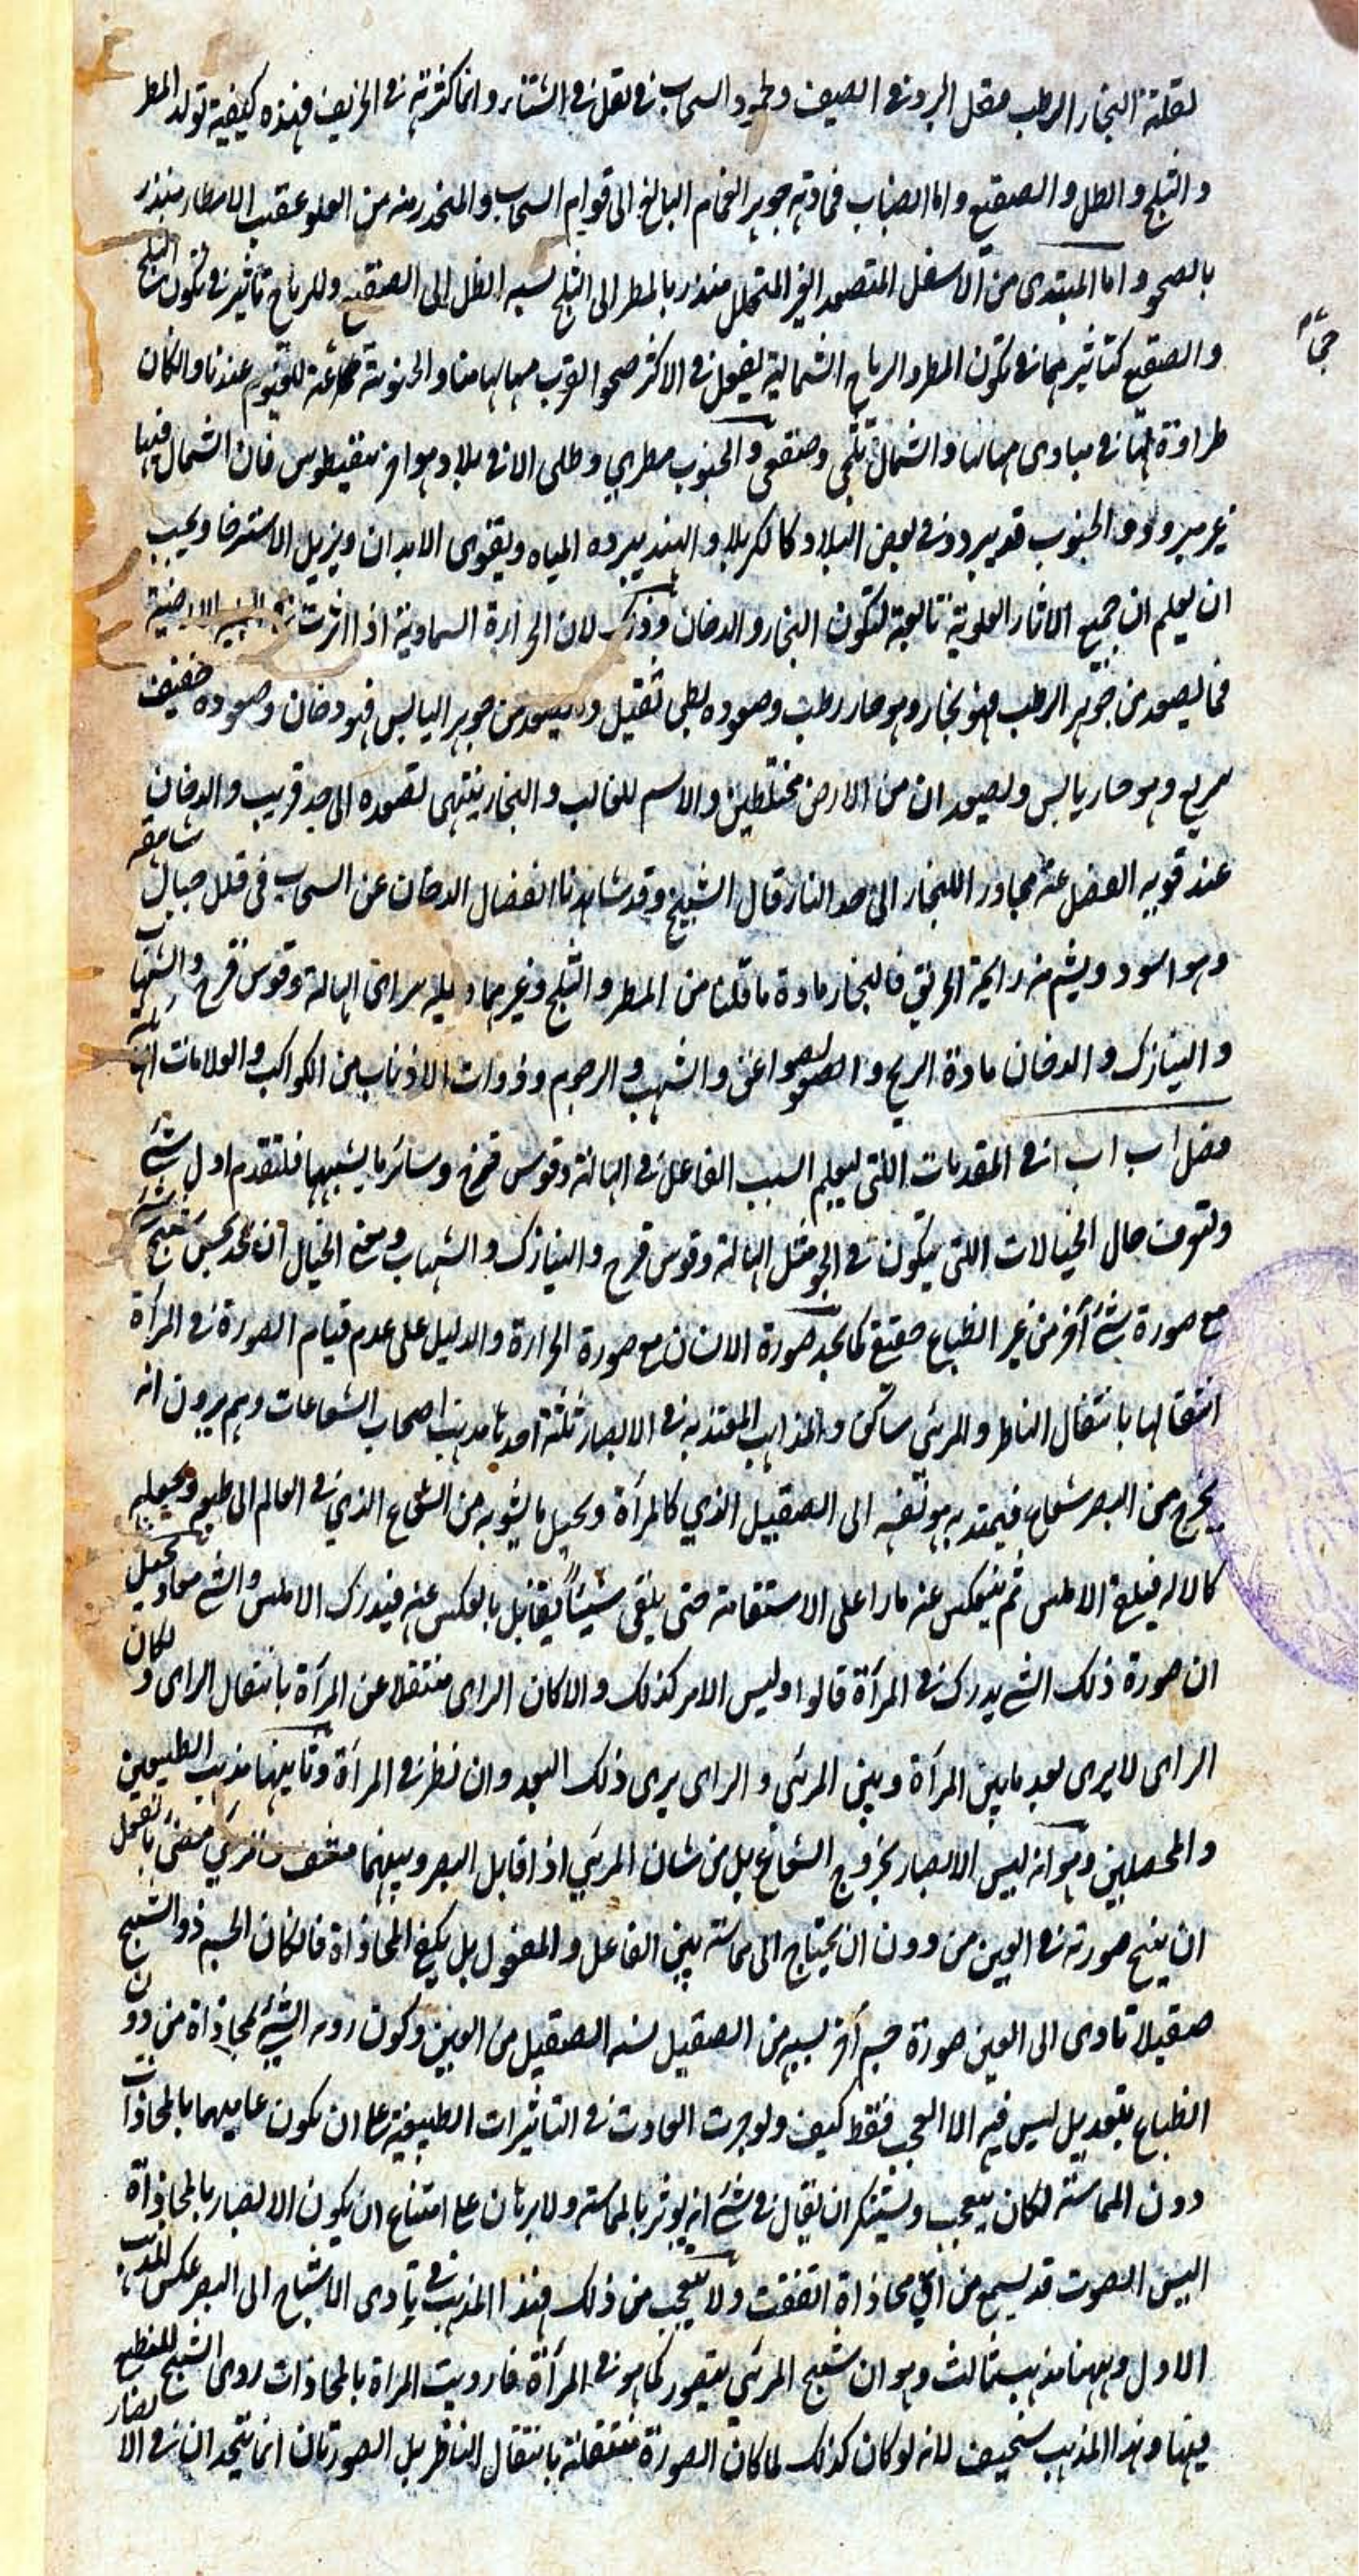 لقلة البخار الرطب مقل البرد في الصيف ولجمود السحاب في تقل في الشتاء وانما كثرته في الخريف فهذه كيفية تولد المطر
والثلج والطل والصقيع واما الضباب فمادته جوهر الغمام البالغ الى قوام السحاب والمنحدر منه من العلو عقيب الامطار منذر
بالصحو واما المبتدى من الاسفل المتصعد الغير المتحلل منذر بالمطر الى الثلج نسبة الطل الى الصقيع وللرياح تأثير في تكون الثلج
والصقيع كتأثيرهما في تكون المطر والرياح الشمالية يفعل في الاكثر صحوا لقرب مهابها منا والجنوبية للغيوم عندنا وان كان
طراوة لها في مبادى مهابها والشمال ثلجى وصقعى والجنوب مطري وطلى الا في بلاد فان الشمال فيها
غير مبرد والجنوب قد يبرد في بعض البلاد كالكربلا والهند يبرده المياه ويقوى الابدان ويزيل الاسترخا ويجب
ان يعلم ان جميع الاثار العلوية تابعة لتكون البخار والدخان وذلك لان الحرارة السماوية اذا اثرت الارضية
فما يصعد من جوهر الرطب فهو بخار وهو حار رطب وصعوده بطى ثقيل و يصعد من جوهر اليابس فهو دخان وصعوده خفيف
سريع وهو حار يابس ويصعد ان من الارض مختلطين والاسم للغالب والبخار ينتهى تصعده الى حد قريب والدخان
عند قويه انفصل عنه مجاوز اللبخار الى حد النار قال الشيخ وقد شاهدنا انفصال الدخان عن السحاب في قلل جبال شامقه
وهو اسود ويشم منه رايحة الحريق فالبخار مادة ما قلنا من المطر والثلج وغيرهما مراى الهالة وقوس قزح والشهبا
والنيازك والدخان مادة الريح والصواعق والشهب والرجوم وذوات الاذناب من الكواكب والعلامات
فصل في المقدمات اللتى ليعلم السبب الفاعل في الهالة وقوس قزح وسائر ما يشبهها فلنقدم اول شئ
ولتعرف حال الخيالات اللتى يتكون في الجو مثل الهالة وقوس قزح والنيازك والشهاب ومعنى الخيال ان نجد حس شبح شئ
مع صورة شئ آخر من غير انطباع حقيقى كما نجد صورة الانسان مع صورة الحرارة والدليل على عدم قيام الصورة في المرآة
انتقالها بانتقال الناظر والمرئى ساكن والمذاهب المعتد به في الابصار ثلثة احدها مذهب اصحاب الشعاعات وهم يرون انه
يخرج من البصر شعاع فيمتد به هو نفسه الى الصقيل الذي كالمرآة ويحيل ما يشوبه من الشعاع الذي في العالم الى طبعه ويجعله
كالاله فيلقى الاملس ثم ينعكس عنه مارا على الاستقامة حتى يلقى شيئا يقابل بالعكس عنه فيدرك الاملس والشئ معا ويخيل
ان صورة ذلك الشئ يدرك في المرآة قالوا وليس الامر كذلك والا كان الراى منتقلا عن المرآة بانتقال الراى ولكان
الراى لا يرى بعد ما بين المرآة وبين المرئى والراى يرى ذلك البعد وان نظر في المرآة وثانيها مذهب الطبيعين
والمحصلين وهو انه ليس الابصار بخروج الشعاع بل من شان المرئى اذا قابل البصر وبينهما مشف مضئ بالفعل
ان ينبح صورته في العين من دون ان يحتاج الى مماسة بين الفاعل والمفعول بل يكفى المحاذاة فان كان الجسم ذو الشبح
صقيلا تادى الى العين صورة جسم آخر نسبه من الصقيل نسبه الصقيل من العين وكون الشئ لمحاذاة من دون
انطباع بتعديل ليس فيه الا العجب فقط كيف ولو جرت العادت في التاثيرات الطبيعية على ان يكون عاميهما بالمحاذات
دون المماسة لكان يتعجب ويستنكر ان يقال في شئ انه يوثر بالمماسة ولا برهان على امتناع ان يكون الابصار بالمحاذاة
اليس الصوت قد يسمع من اى محاذاة اتفقت ولا يتعجب من ذلك فهذا المذهب في تأدى الاشباح الى البصر عكس المذهب
الاول وههنا مذهب ثالث وهو ان شبح المرئى يتصور كما هو في المرآة فاذ رويت المراة بالمحاذات روى الشبح المنطبع
فيها وهذا المذهب سخيف لانه لو كان كذلك لما كان الصورة منتقلة بانتقال الناظر بل الصورتان انما تتحد ان في الابصار